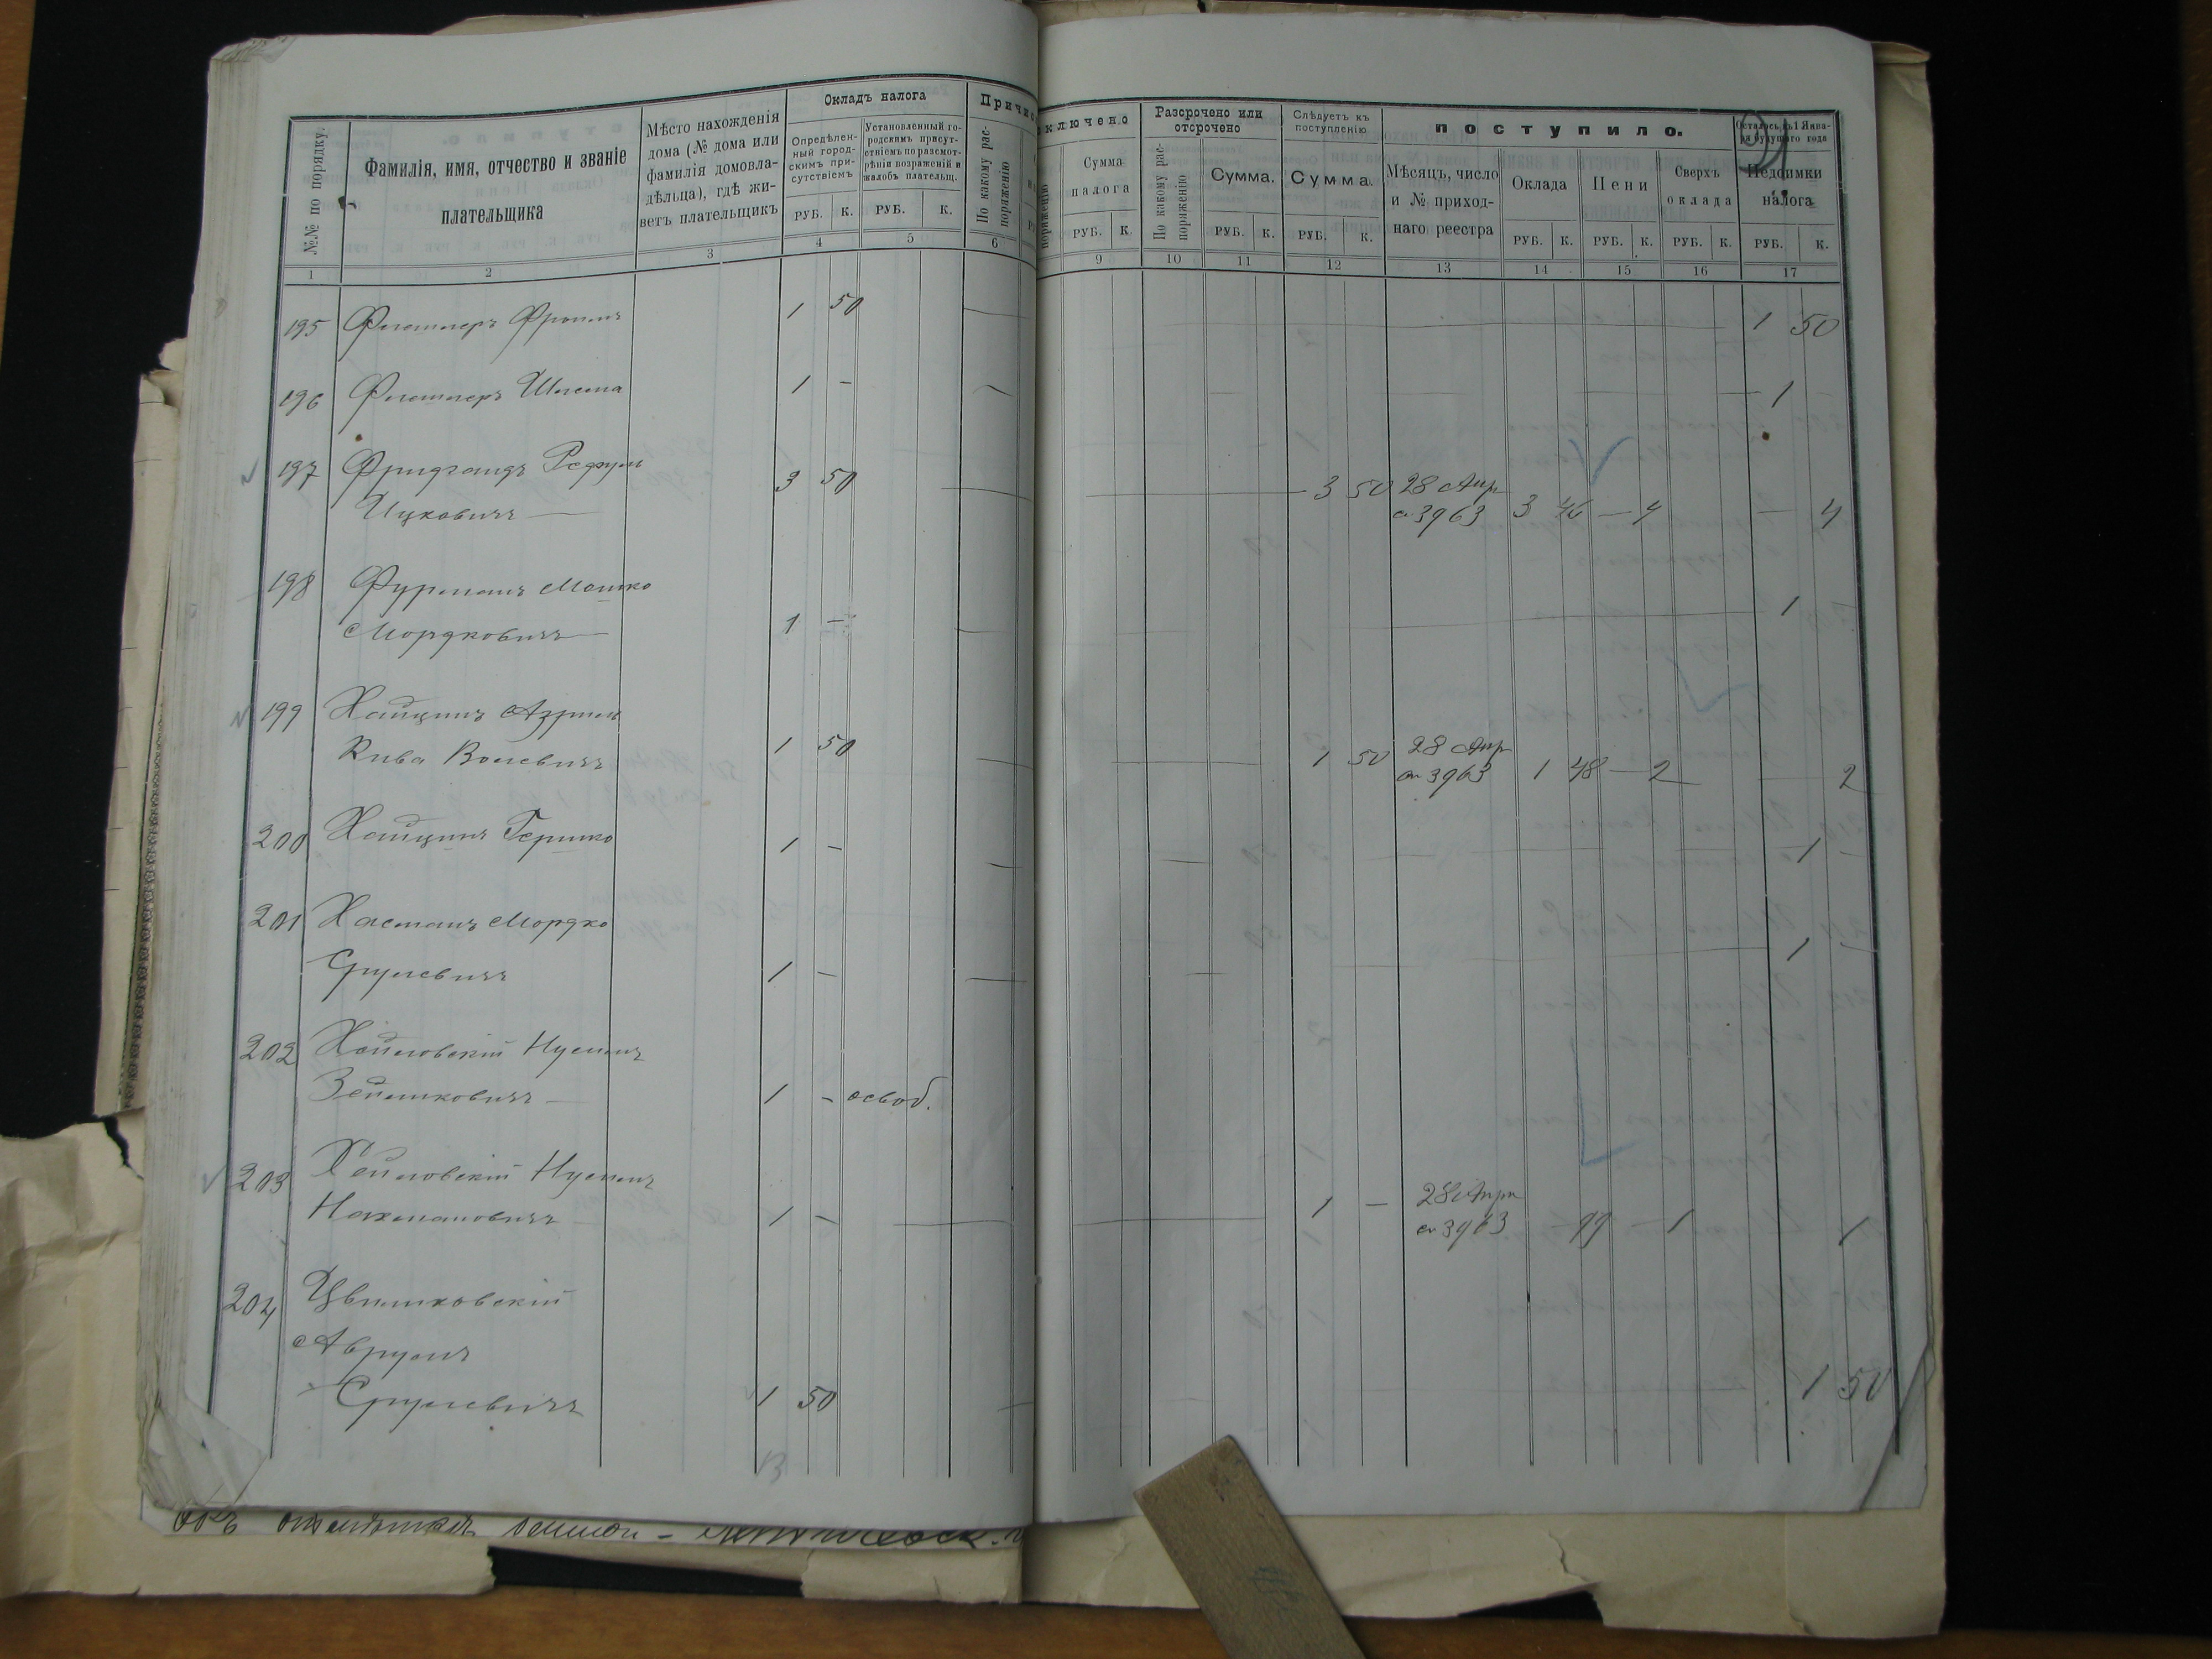 Окладъ налога
Причис
№№ по порядку.
Фамилія, имя, отчество и званіе
плательщика
Мѣсто нахожденія
дома (№ дома или
фамилія домовла-
дѣльца), гдѣ жи-
ветъ плательщикъ
Опредѣлен-
ный город-
скимъ при-
сутствіемъ
Установленный го-
родскимъ присут-
ствіемъ по разсмот-
рѣніи возраженій и
жалобъ плательщ.
По какому рас-
поряженію
РУБ. К. РУБ. К.
1 2 3 4 5 6
ключено
Разсрочено или
отсрочено
Слѣдуетъ къ
поступленію
поступило.
Осталось къ 1 Янва-
ря будущаго года
21
поряженію
Сумма
налога
По какому рас-
поряженію
Сумма.
Сумма.
Мѣсяцъ, число
и № приход-
наго реестра
Оклада
Пени
Сверхъ
оклада
Недоимки
налога
РУБ. К. РУБ. К. РУБ. К. РУБ. К. РУБ. К. РУБ. К. РУБ. К.
9 10 11 12 13 14 15 16 17
195 1 50 1 50
196 1 - 1
197
Ицковичъ 3 50 3 50 28 Апр
3963 3 46 - 4 - 4
198 Фурманъ Мошко
Мордковичъ 1 - 1
199 Хайцинъ Азриль
Кива Волевичъ 1 50 1 50 28 Апр
3963 1 48 - 2 2
200 Хайцинъ Гершко 1 - 1 -
201 Хасманъ Мордко
Срулевичъ 1 - 1 -
202 Нусинъ
1 - освоб.
203 Нусинъ
Нахмановичъ 1 - 1 - 28 Апр
3963 - 99 - 1 1
204
Аврумъ
Срулевичъ 1 50 1 50
13